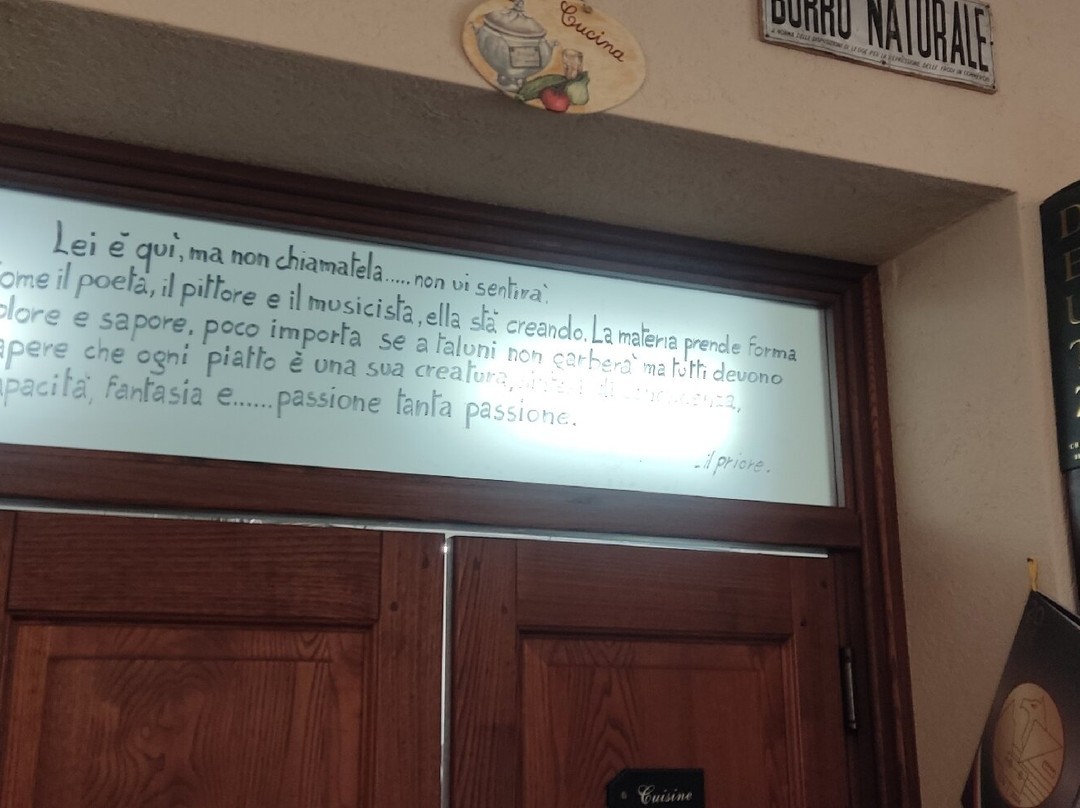 Cucina
BURRO NATURALE
Lei è quì, ma non chiamatela..... non vi sentirà.
ome il poeta, il pittore e il musicista, ella stà creando. La materia prende forma
olore e sapore, poco importa se a taluni non garberà ma tutti devono
apere che ogni piatto è una sua creatura,
apacità, fantasia e......passione tanta passione.
.il priore.
Cuisine